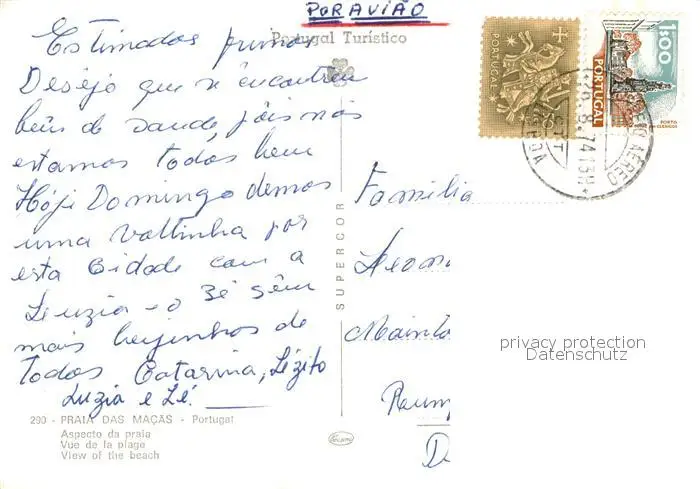 POR AVIÃO
Portugal Turístico
Estimados primos
Desejo que se encontrem
bem de saude, pois nós
estamos todos bem
Hóji Domingo demos
uma voltinha por
esta Cidade com a
Leuzia e o Zé sem
mais beijinhos de
Todos Catarina, Lézito
Luzia e Zé.
290 - PRAIA DAS MAÇÃS - Portugal
Aspecto da praia
Vue de la plage
View of the beach
SUPERCOR
PORTUGAL
1$00
PORTUGAL
PORTO
CORREIO AÉREO
74 13H
CTT
LISBOA
Familia
privacy protection
Datenschutz